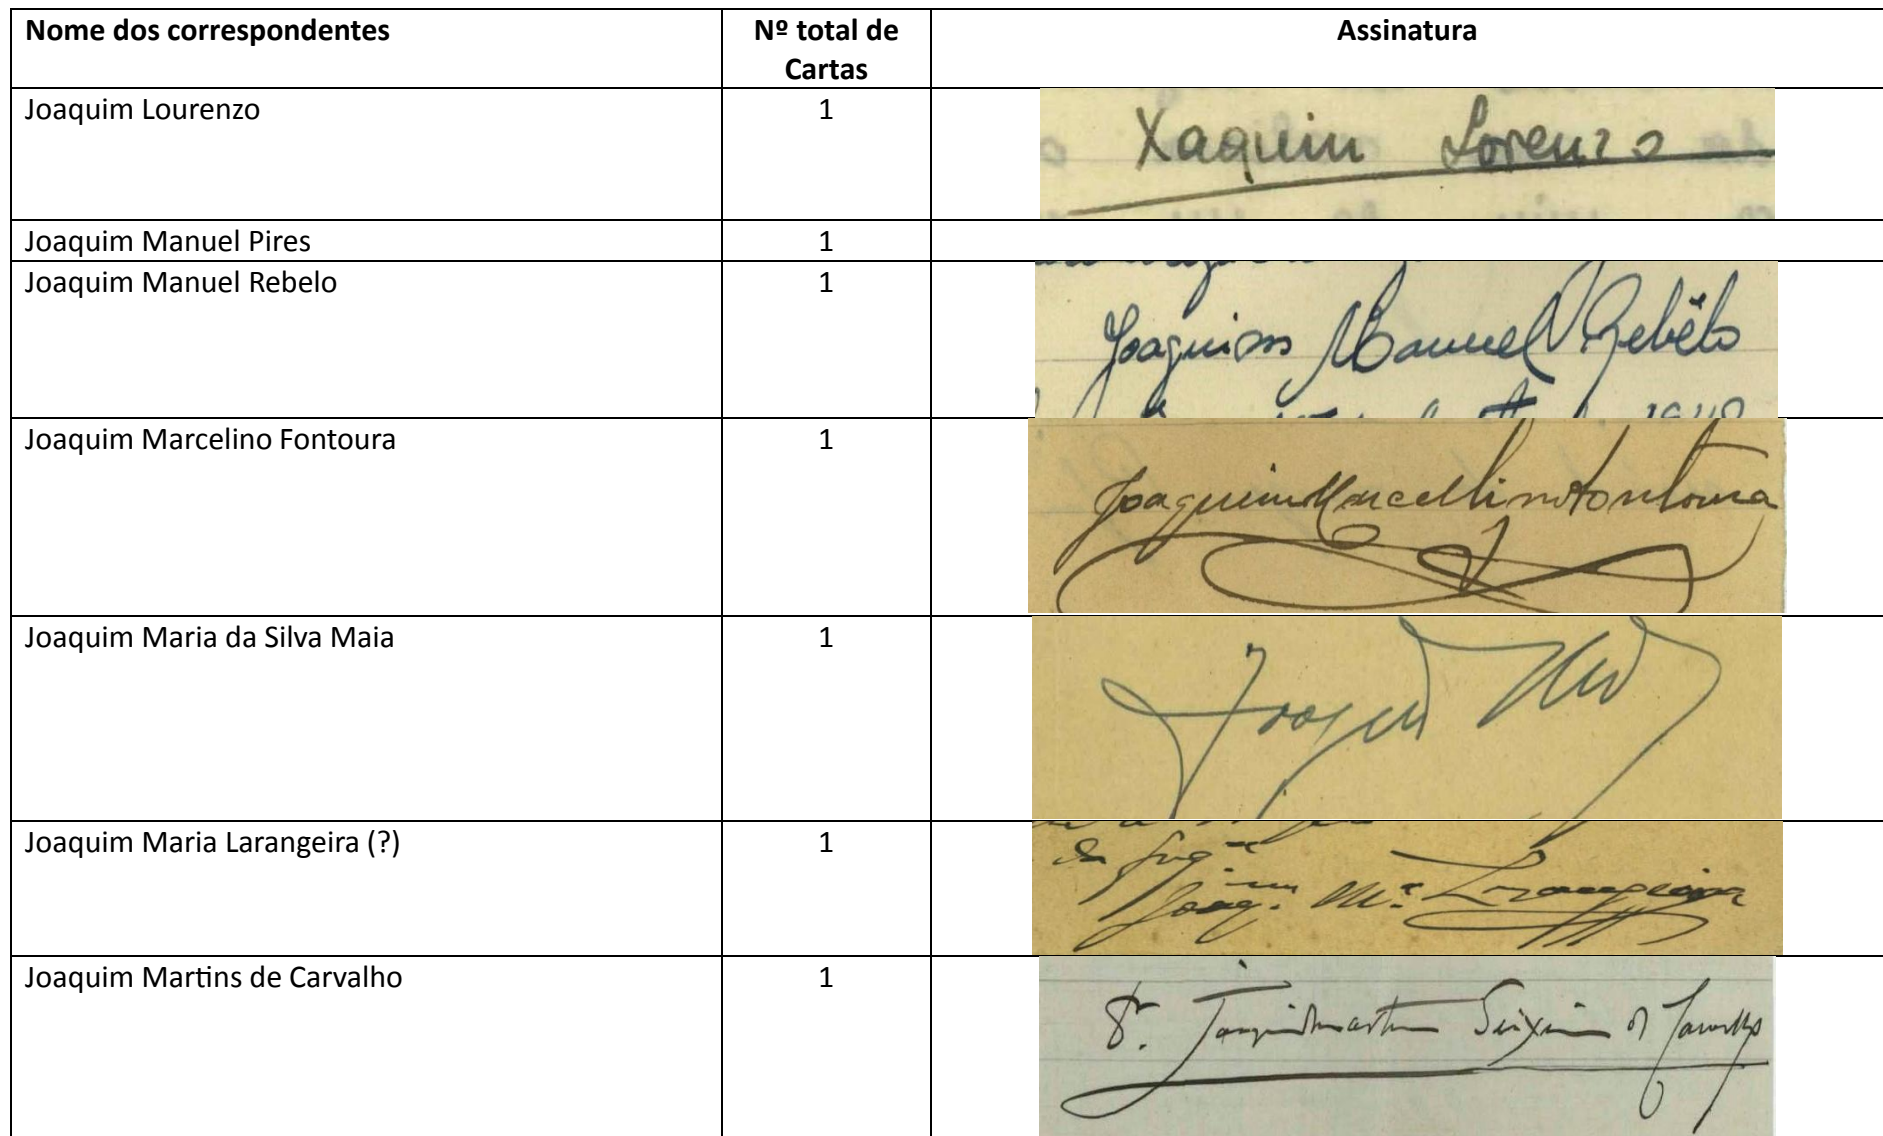 Nome dos correspondentes
Nº total de
Cartas
Assinatura
Joaquim Lourenzo
1
Xaquin Lorenzo
Joaquim Manuel Pires
1
Joaquim Manuel Rebelo
1
Joaquim Manuel Rebêlo
Joaquim Marcelino Fontoura
1
Joaquim Marcellino Fontoura
Joaquim Maria da Silva Maia
1
Joaquim Maria Larangeira (?)
1
Joaq.ᵐ Mª Larangeira
Joaquim Martins de Carvalho
1
Joaquim Martins Teixeira de Carvalho